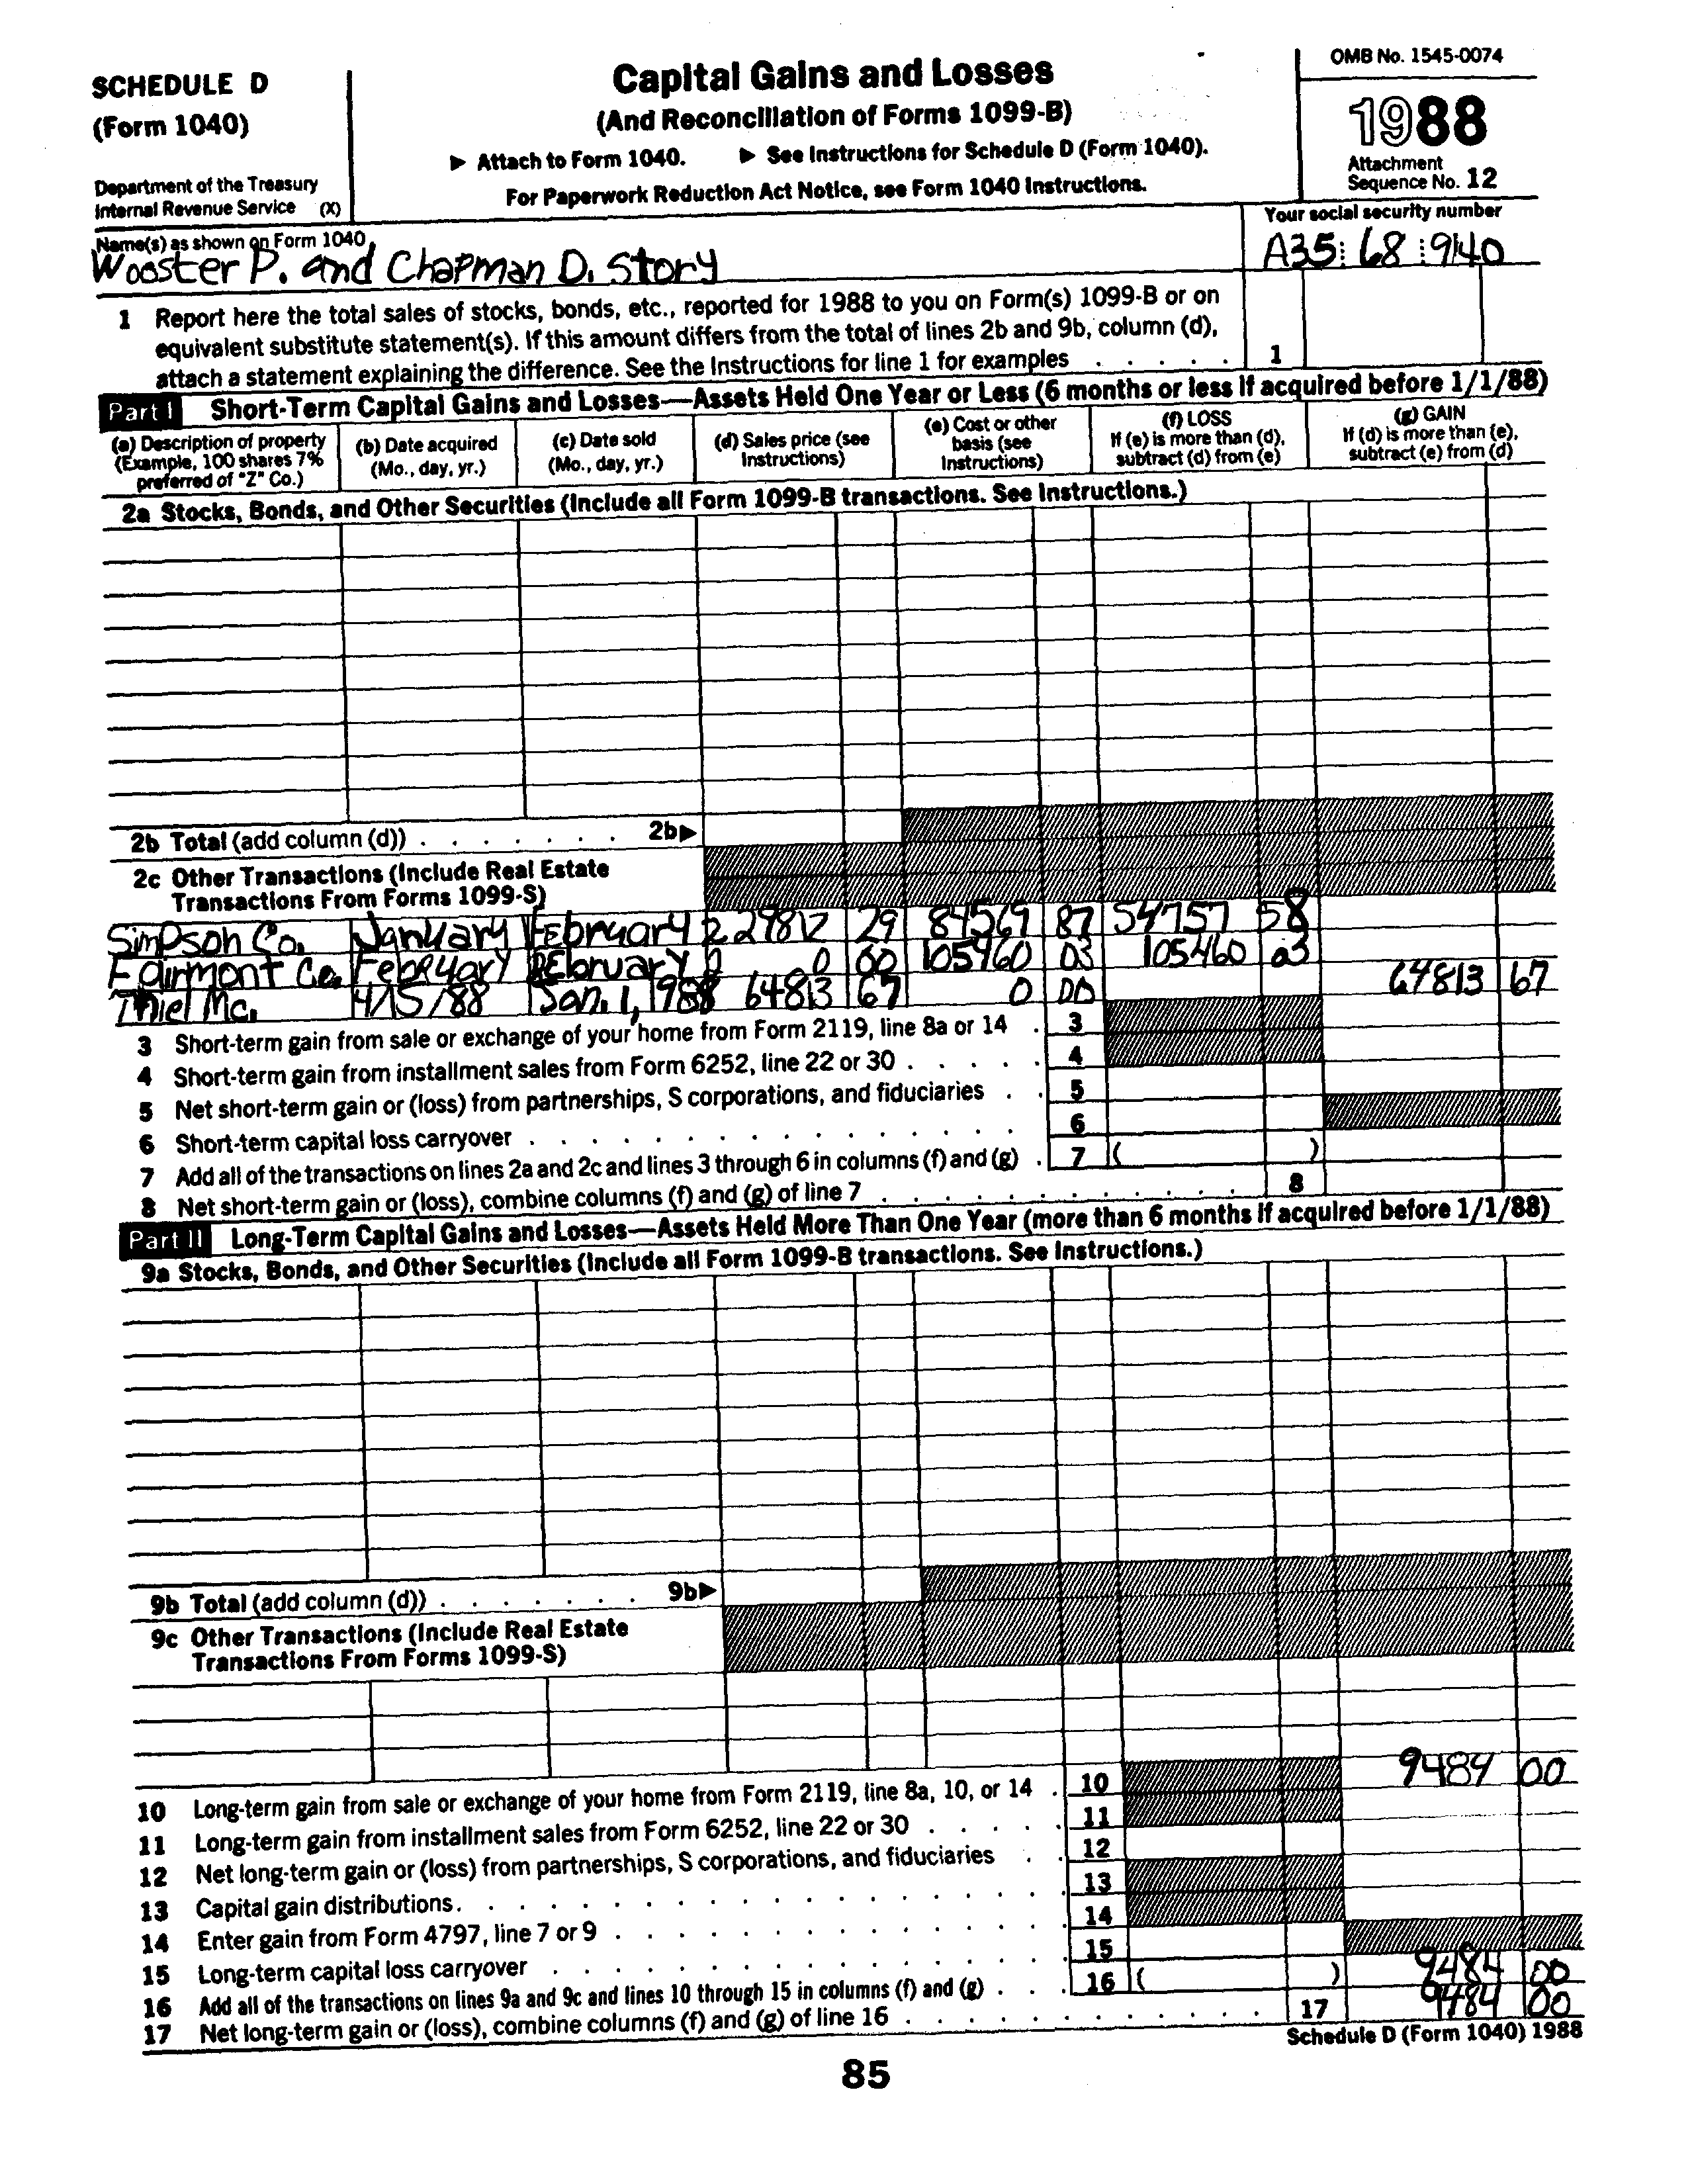 SCHEDULE D
(Form 1040)
Department of the Treasury
Internal Revenue Service (X)
Capital Gains and Losses
(And Reconciliation of Forms 1099-B)
▶ Attach to Form 1040. ▶ See Instructions for Schedule D (Form 1040).
For Paperwork Reduction Act Notice, see Form 1040 Instructions.
OMB No. 1545-0074
1988
Attachment
Sequence No. 12
Name(s) as shown on Form 1040
Wooster P. and Chapman D. Story
Your social security number
A35 68 9140
1 Report here the total sales of stocks, bonds, etc., reported for 1988 to you on Form(s) 1099-B or on
equivalent substitute statement(s). If this amount differs from the total of lines 2b and 9b, column (d),
attach a statement explaining the difference. See the Instructions for line 1 for examples . . . . . 1
Part I Short-Term Capital Gains and Losses—Assets Held One Year or Less (6 months or less if acquired before 1/1/88)
(a) Description of property
(Example, 100 shares 7%
preferred of "Z" Co.)
(b) Date acquired
(Mo., day, yr.)
(c) Date sold
(Mo., day, yr.)
(d) Sales price (see
Instructions)
(e) Cost or other
basis (see
Instructions)
(f) LOSS
If (e) is more than (d),
subtract (d) from (e)
(g) GAIN
If (d) is more than (e),
subtract (e) from (d)
2a Stocks, Bonds, and Other Securities (Include all Form 1099-B transactions. See Instructions.)
2b Total (add column (d)) . . . . . . . 2b▶
2c Other Transactions (Include Real Estate
Transactions From Forms 1099-S)
Simpson Co. January February 2 29812 29 84569 87 54757 58
Fairmont Co. February February 0 00 105460 03 105460 03
Thiel Mc. 4/15/88 Jan. 1, 1988 64813 67 0 00 64813 67
3 Short-term gain from sale or exchange of your home from Form 2119, line 8a or 14 . 3
4 Short-term gain from installment sales from Form 6252, line 22 or 30 . . . . . 4
5 Net short-term gain or (loss) from partnerships, S corporations, and fiduciaries . . 5
6 Short-term capital loss carryover . . . . . . . . . . . . . . . 6
7 Add all of the transactions on lines 2a and 2c and lines 3 through 6 in columns (f) and (g) . 7 ( )
8 Net short-term gain or (loss), combine columns (f) and (g) of line 7 . . . . . . . . . . . . 8
Part II Long-Term Capital Gains and Losses—Assets Held More Than One Year (more than 6 months if acquired before 1/1/88)
9a Stocks, Bonds, and Other Securities (Include all Form 1099-B transactions. See Instructions.)
9b Total (add column (d)) . . . . . . . 9b▶
9c Other Transactions (Include Real Estate
Transactions From Forms 1099-S)
10 Long-term gain from sale or exchange of your home from Form 2119, line 8a, 10, or 14 . 10 9484 00
11 Long-term gain from installment sales from Form 6252, line 22 or 30 . . . . . 11
12 Net long-term gain or (loss) from partnerships, S corporations, and fiduciaries . . 12
13 Capital gain distributions. . . . . . . . . . . . . . . . . . 13
14 Enter gain from Form 4797, line 7 or 9 . . . . . . . . . . . . . 14
15 Long-term capital loss carryover . . . . . . . . . . . . . . . 15
16 Add all of the transactions on lines 9a and 9c and lines 10 through 15 in columns (f) and (g) . . . 16 ( ) 9484 00
17 Net long-term gain or (loss), combine columns (f) and (g) of line 16 . . . . . . . . . . . . 17 9484 00
Schedule D (Form 1040) 1988
85